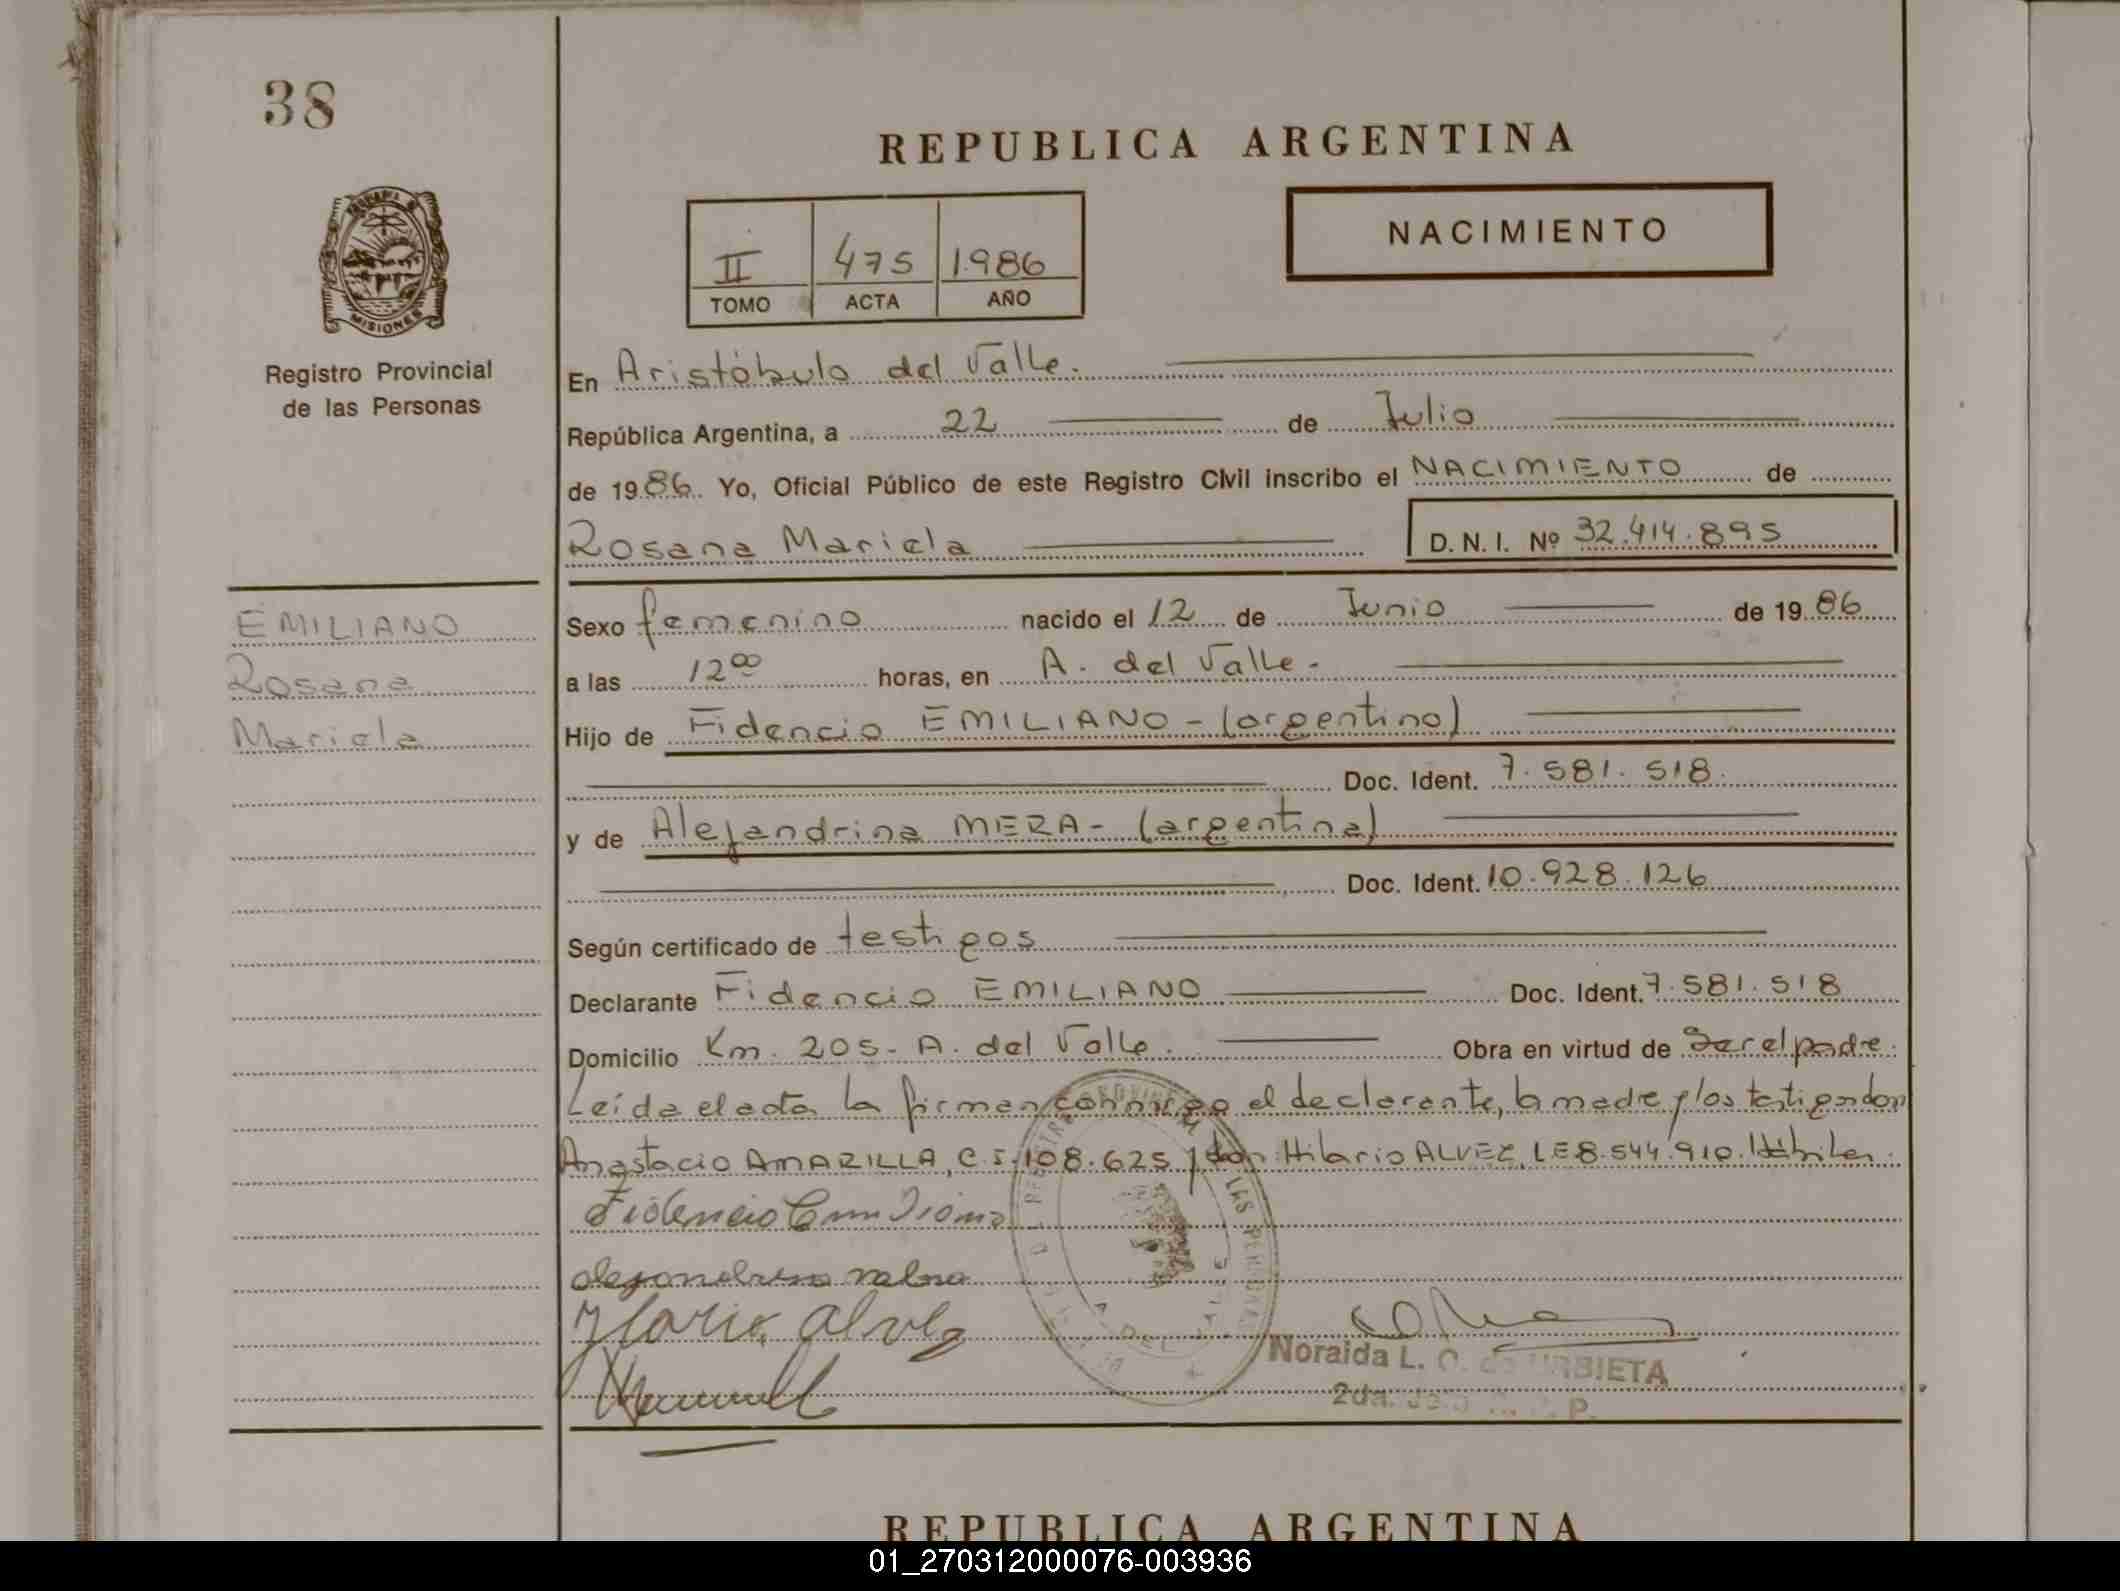 38
REPUBLICA ARGENTINA
NACIMIENTO
II 475 1.986
TOMO ACTA AÑO
MISIONES
Registro Provincial
de las Personas
En Aristóbulo del Valle.
República Argentina, a 22 de Julio
de 1986. Yo, Oficial Público de este Registro Civil inscribo el NACIMIENTO de
Rosana Mariela D. N. I. Nº 32.414.895
EMILIANO
Rosana
Mariela
Sexo femenino nacido el 12 de Junio de 1986
a las 12 00 horas, en A. del Valle.-
Hijo de Fidencio EMILIANO - (argentino)
Doc. Ident. 7.581.518.
y de Alejandrina MERA - (argentina)
Doc. Ident. 10.928.126
Según certificado de testigos
Declarante Fidencio EMILIANO Doc. Ident. 7.581.518
Domicilio Km. 205 - A. del Valle. Obra en virtud de Ser el padre.
Leída el acta la firman conmigo el declarante, la madre y los testigos don
Anastacio AMARILLA, C.I. 108.625 y don Hilario ALVEZ, LE 8.544.910. Hábiles.
Fidencio
Noraida L. O. de URBIETA
2da. Jefa R. P. P.
REPUBLICA ARGENTINA
01_270312000076-003936